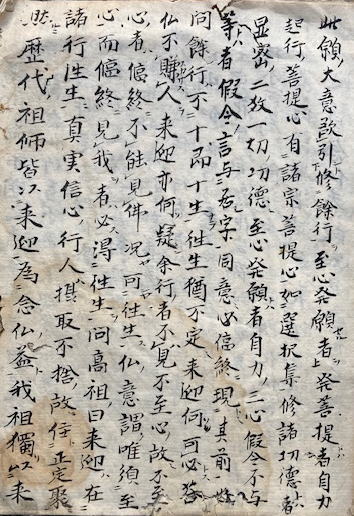 此願大意欲引修餘行至心発願者発菩提者自力
起行菩提心有諸宗菩提心如選択集修諸功徳者
显密二教一切功徳至心発願者自力三心假令不与
等者假令言与若字同意必臨終現其前
問餘行不十即十生往生猶不定来迎何可必荅
仏不賺人来迎亦何疑余行者不見不至心故不至
心者臨終不能見仏况可往生仏意謂唯須至
心而臨終見我者必得往生問高祖曰来迎在
諸行往生真実信心行人摂取不捨故住正定聚
歴代祖師皆以来迎為念仏益我祖獨以来